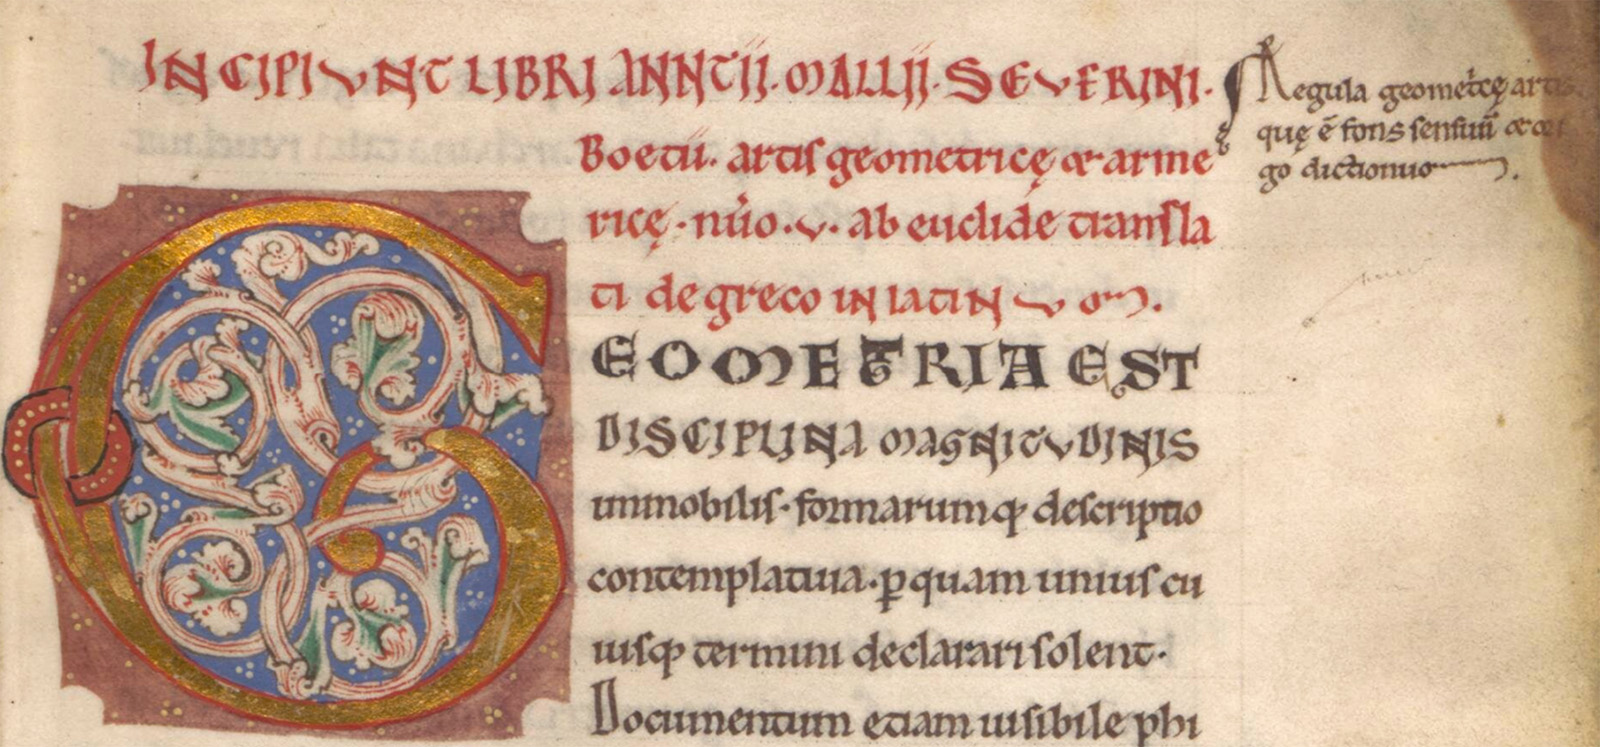 INCIPIVNT LIBRI ANNTII. MALLII. SEVERINI.
Boetii. artis geometricę & arime
ricę. nũo. v. ab euclide transla
ti de greco IN LATINVOM.
GEOMETRIA EST
DISCIPLINA MAGNITVDINIS
immobilis. formarumq; descriptio
contemplatiua. ꝑ quam unius cu
iusq; termini declarari solent.
Documentum etiam uisibile phi
Regula geometrcę artis
quę ē fons sensuū &
go dictionuʒ.